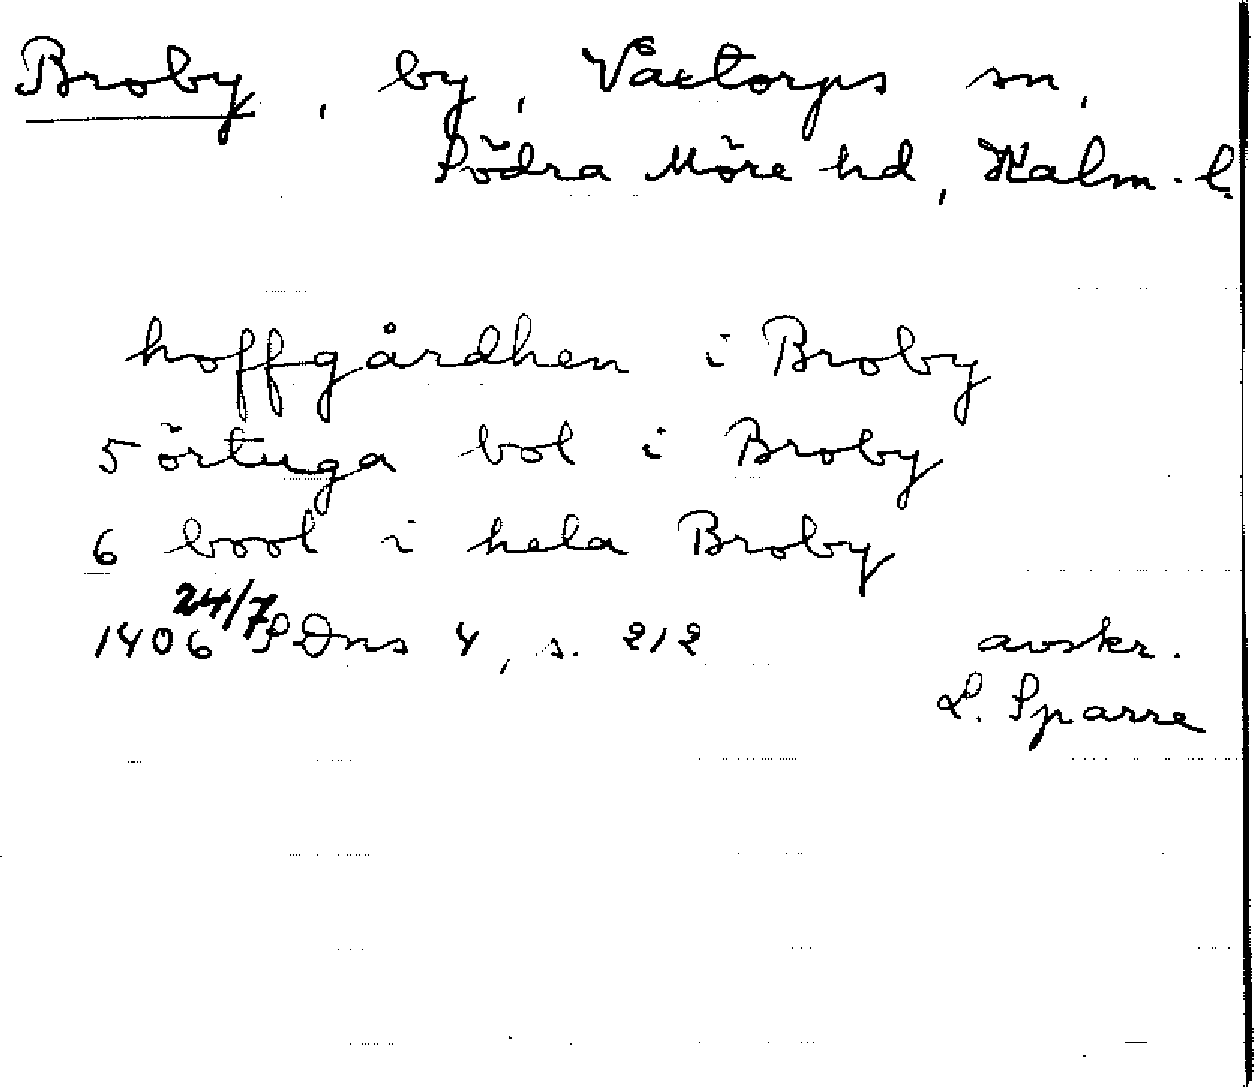 Broby, by, Växtorps sn,
Södra Möre hd, Kalm. l.
hoffgårdhen i Broby
5 örtuga bol i Broby
6 bool i hela Broby
1406 24/7 SDns 4, s. 212 avskr.
L. Sparre